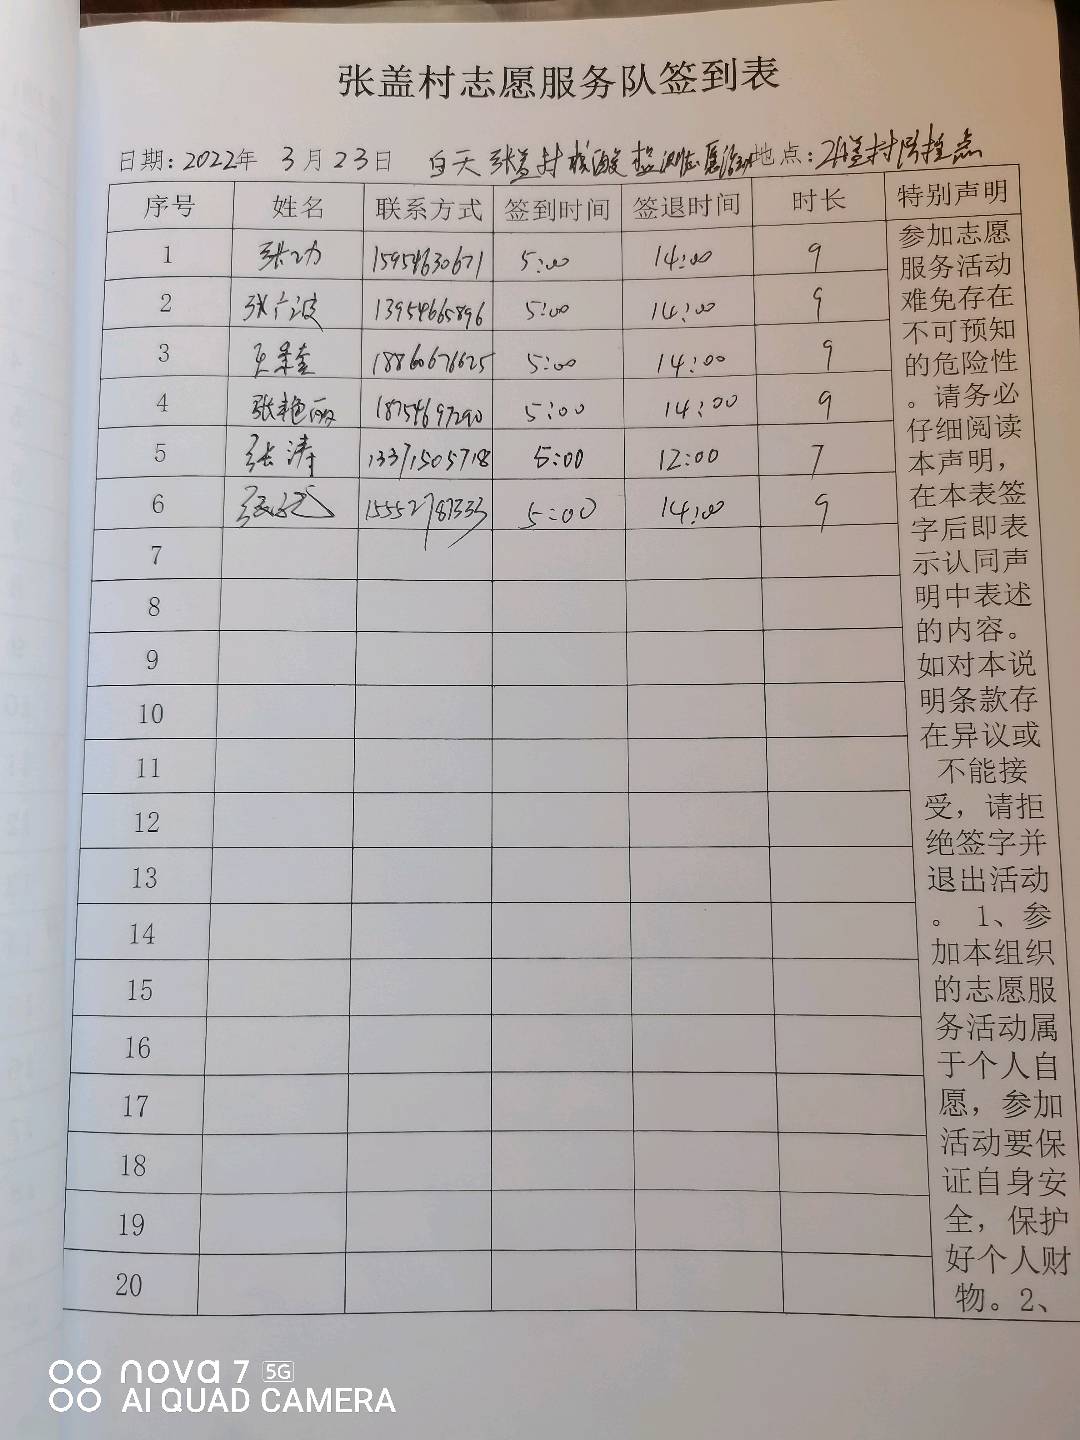 张盖村志愿服务队签到表
日期:2022年 3月23日 白天 张盖村核酸检测志愿活动 地点:张盖村防控点
序号 姓名 联系方式 签到时间 签退时间 时长 特别声明
1 张功 15954630671 5:00 14:00 9
2 张广波 13954665896 5:00 14:00 9
3 18860676625 5:00 14:00 9
4 张艳丽 18754697290 5:00 14:00 9
5 张涛 13371505718 5:00 12:00 7
6 15552787333 5:00 14:00 9
7
8
9
10
11
12
13
14
15
16
17
18
19
20
参加志愿
服务活动
难免存在
不可预知
的危险性
。请务必
仔细阅读
本声明,
在本表签
字后即表
示认同声
明中表述
的内容。
如对本说
明条款存
在异议或
不能接
受,请拒
绝签字并
退出活动
。 1、参
加本组织
的志愿服
务活动属
于个人自
愿,参加
活动要保
证自身安
全,保护
好个人财
物。2、
nova 7 5G
AI QUAD CAMERA